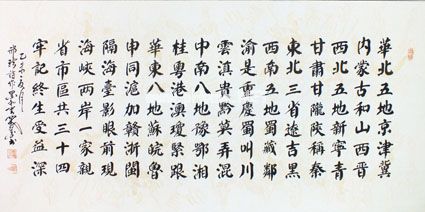 華北五地京津冀
內蒙古和山西晋
西北五地新寧青
甘肅甘隴陝稱秦
東北三省遼吉黑
西南五地蜀藏鄰
渝是重慶蜀叫川
雲滇貴黔莫弄混
中南八地豫鄂湘
桂粤港澳瓊緊跟
華東八地蘇皖魯
申同滬加贛浙閩
隔海臺影眼前現
海峽兩岸一家親
省市區共三十四
牢記終生受益深